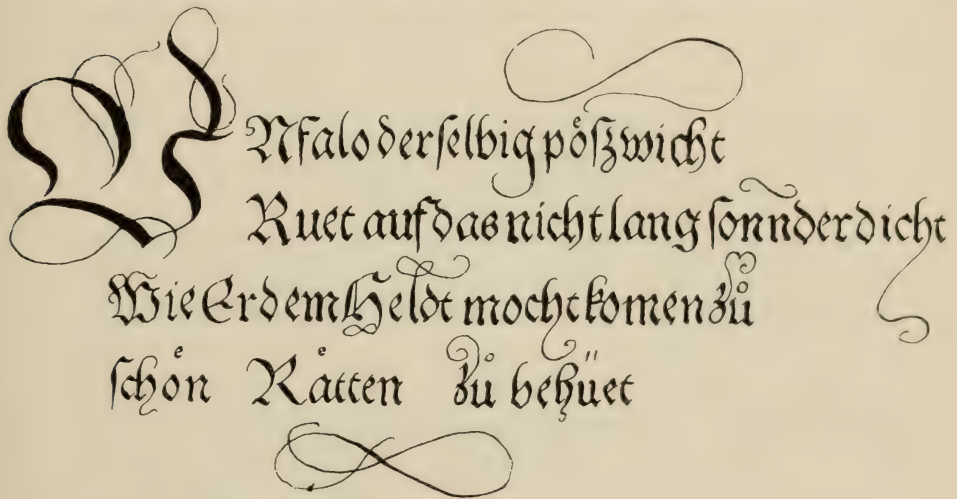 VNfalo der selbig pöſzwicht
Ruet auf das nicht lang ſonnder dicht
Wie Er dem Heldt mocht komen zů
ſchoͤn Raͤtten zů behüet